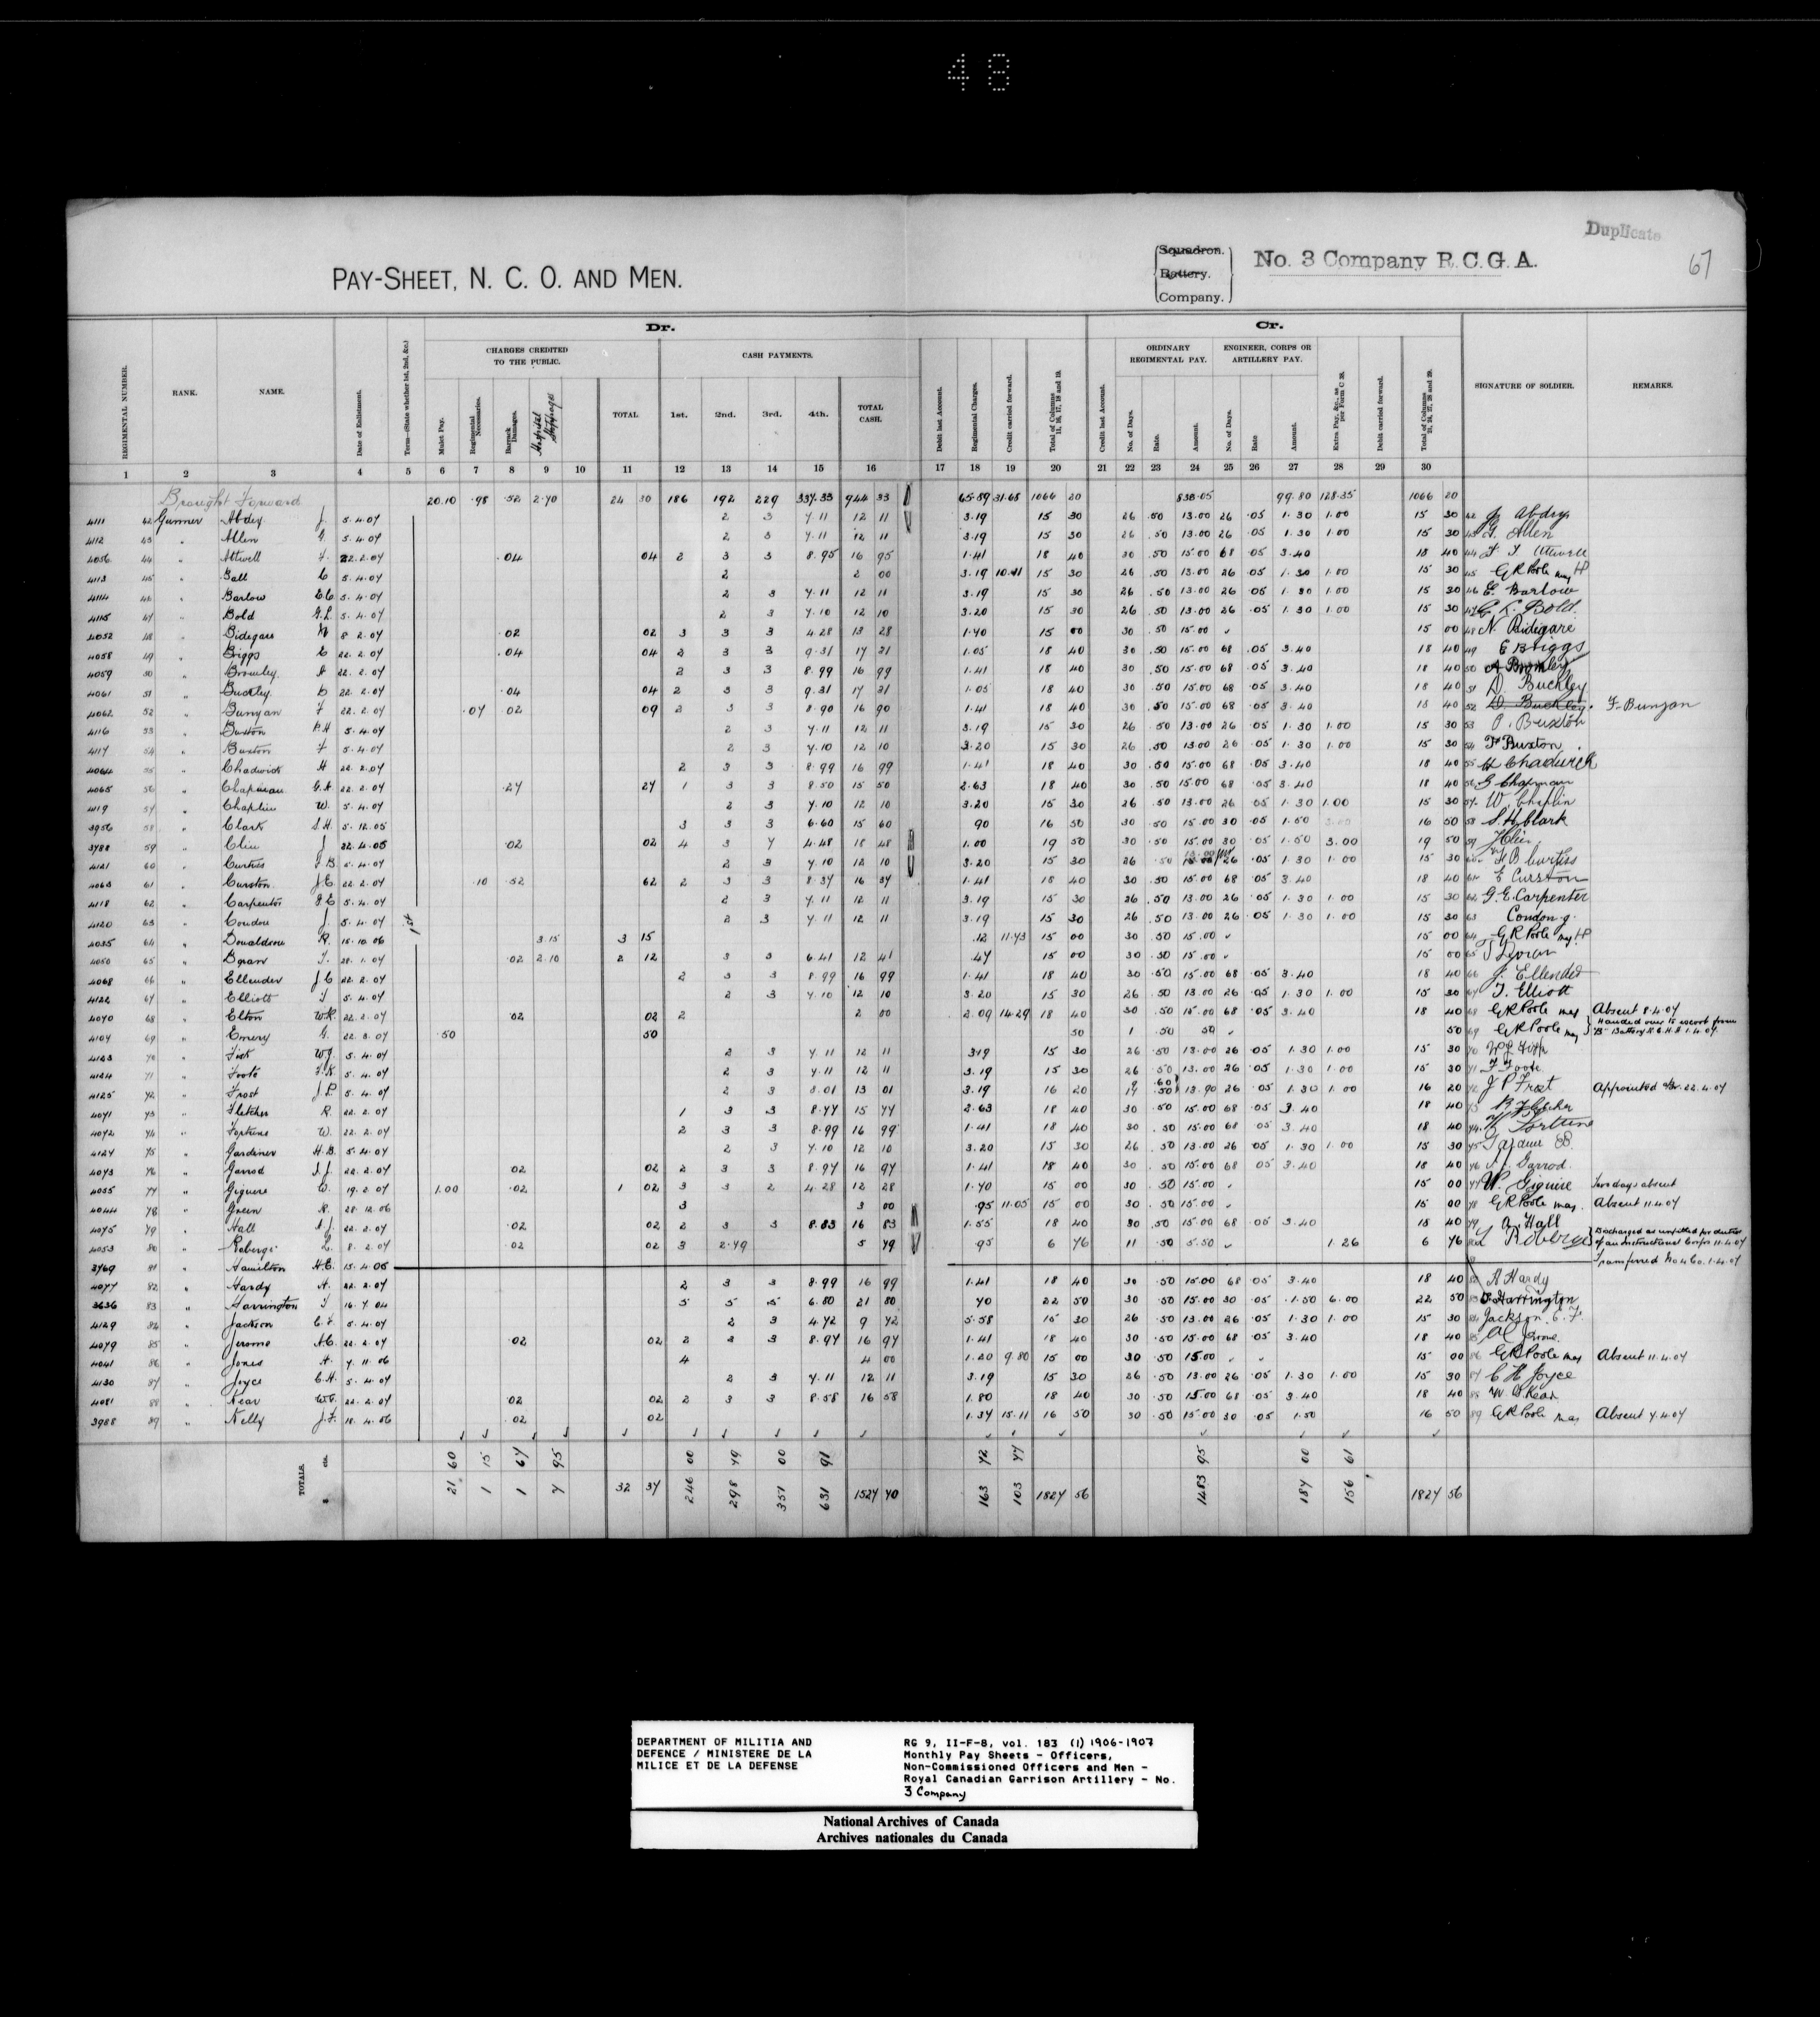 48
Duplicate
67
PAY-SHEET, N. C. O. AND MEN.
Squadron.
Battery.
Company.
No. 3 Company R.C.G.A.
Dr.
Cr.
CHARGES CREDITED TO THE PUBLIC.
CASH PAYMENTS.
ORDINARY REGIMENTAL PAY.
ENGINEER, CORPS OR ARTILLERY PAY.
REGIMENTAL NUMBER.
RANK.
NAME.
Date of Enlistment.
Term—(State whether 1st, 2nd, &c.)
Mulct Pay.
Regimental Necessaries.
Barrack Damages.
Hospital Stoppages
TOTAL
1st.
2nd.
3rd.
4th.
TOTAL CASH.
Debit last Account.
Regimental Charges.
Credit carried forward.
Total of Columns 11, 16, 17, 18 and 19.
Credit last Account.
No. of Days.
Rate.
Amount.
No. of Days.
Rate
Amount.
Extra Pay, &c., as per Form C 28.
Debit carried forward.
Total of Columns 21, 24, 27, 28 and 29.
SIGNATURE OF SOLDIER.
REMARKS.
1 2 3 4 5 6 7 8 9 10 11 12 13 14 15 16 17 18 19 20 21 22 23 24 25 26 27 28 29 30
Brought Forward 20.10 .98 .52 2.70 24 30 186 192 229 337.33 944 33 65.89 31.68 1066 20 838.05 99.80 128.35 1066 20
4111 42 Gunner Abdy J. 5.4.07 2 3 7.11 12 11 3.19 15 30 26 .50 13.00 26 .05 1.30 1.00 15 30 42 J Abdy
4112 43 " Allen G. 5.4.07 2 3 7.11 12 11 3.19 15 30 26 .50 13.00 26 .05 1.30 1.00 15 30 43 G. Allen
4056 44 " Attwell F. 22.2.07 .04 04 2 3 3 8.95 16 95 1.41 18 40 30 .50 15.00 68 .05 3.40 18 40 44
4113 45 " 5.4.07 2 2 00 3.19 10.11 15 30 26 .50 13.00 26 .05 1.30 1.00 15 30 45 GR Poole
4114 46 " Barlow E.C. 5.4.07 2 3 7.11 12 11 3.19 15 30 26 .50 13.00 26 .05 1.30 1.00 15 30 46 E. Barlow
4115 47 " Bold G.L. 5.4.07 2 3 7.10 12 10 3.20 15 30 26 .50 13.00 26 .05 1.30 1.00 15 30 47 G. L. Bold.
4052 48 " Bidegare N 8 2.07 .02 02 3 3 3 4.28 13 28 1.70 15 00 30 .50 15.00 15 00 48 N. Bidigare
4058 49 " Briggs E 22.2.07 .04 04 2 3 3 9.31 17 31 1.05 18 40 30 .50 15.00 68 .05 3.40 18 40 49 E Briggs
4059 50 " Bromley A 22.2.07 2 3 3 8.99 16 99 1.41 18 40 30 .50 15.00 68 .05 3.40 18 40 50 A Bromley
4061 51 " Buckley D 22.2.07 .04 04 2 3 3 9.31 17 31 1.05 18 40 30 .50 15.00 68 .05 3.40 18 40 51 D. Buckley
4062 52 " Bunyan F 22.2.07 .07 02 09 2 3 3 8.90 16 90 1.41 18 40 30 .50 15.00 68 .05 3.40 18 40 52 D. Buckley. F. Bunyan
4116 53 " Buxton P.H 5.4.07 2 3 7.11 12 11 3.19 15 30 26 .50 13.00 26 .05 1.30 1.00 15 30 53 P. Buxton
4117 54 " Buxton F 5.4.07 2 3 7.10 12 10 3.20 15 30 26 .50 13.00 26 .05 1.30 1.00 15 30 54 F Buxton
4064 55 " Chadwick H 22.2.07 2 3 3 8.99 16 99 1.41 18 40 30 .50 15.00 68 .05 3.40 18 40 55 H Chadwick
4065 56 " Chapman G.A 22.2.07 .27 27 1 3 3 8.50 15 50 2.63 18 40 30 .50 15.00 68 .05 3.40 18 40 56 G Chapman
4119 57 " Chaplin W. 5.4.07 2 3 7.10 12 10 3.20 15 30 26 .50 13.00 26 .05 1.30 1.00 15 30 57 W. Chaplin
3956 58 " Clark S.H. 5.12.05 3 3 3 6.60 15 60 90 16 50 30 .50 15.00 30 .05 1.50 16 50 58 S.H. Clark
3788 59 " J 22.4.05 .02 02 4 3 7 4.48 18 48 1.00 19 50 30 .50 15.00 30 .05 1.50 3.00 19 50 59
4121 60 " Curtiss F B 5.4.07 2 3 7.10 12 10 3.20 15 30 26 .50 13.00 26 .05 1.30 1.00 15 30 60 F B Curtiss
4063 61 " Curston J.E. 22.2.07 .10 .52 62 2 3 3 8.37 16 37 1.41 18 40 30 .50 15.00 68 .05 3.40 18 40 61 E Curston
4118 62 " Carpenter G E 5.4.07 2 3 7.11 12 11 3.19 15 30 26 .50 13.00 26 .05 1.30 1.00 15 30 62 G.E. Carpenter
4120 63 " Condon J. 5.4.07 1st 2 3 7.11 12 11 3.19 15 30 26 .50 13.00 26 .05 1.30 1.00 15 30 63 Condon J.
4035 64 " Donaldson R. 15.10.06 3.15 3 15 .12 11.73 15 00 30 .50 15.00 15 00 64 GR Poole
4050 65 " T. 28.1.07 .02 2.10 2 12 3 3 6.41 12 41 .47 15 00 30 .50 15.00 15 00 65
4068 66 " Ellender J.C 22.2.07 2 3 3 8.99 16 99 1.41 18 40 30 .50 15.00 68 .05 3.40 18 40 66 J. Ellender
4122 67 " Elliott T 5.4.07 2 3 7.10 12 10 3.20 15 30 26 .50 13.00 26 .05 1.30 1.00 15 30 67 T. Elliott
4070 68 " Elton W.R. 22.2.07 .02 02 2 2 00 2.09 14.29 18 40 30 .50 15.00 68 .05 3.40 18 40 68 GR Poole Absent 8.4.07
4107 69 " Emery G. 22.3.07 .50 50 50 1 .50 50 50 69 GR Poole Handed over to escort from "B" Battery R.C.H.A 1.4.07.
4123 70 " Fish W.J. 5.4.07 2 3 7.11 12 11 3.19 15 30 26 .50 13.00 26 .05 1.30 1.00 15 30 70 W J Fish
4124 71 " Foote F.R. 5.4.07 2 3 7.11 12 11 3.19 15 30 26 .50 13.00 26 .05 1.30 1.00 15 30 71 F Foote
4125 72 " Frost J.P. 5.4.07 2 3 8.01 13 01 3.19 16 20 9 17 .60 .50 13.90 26 .05 1.30 1.00 16 20 72 J P Frost Appointed 22.4.07
4071 73 " Fletcher R. 22.2.07 1 3 3 8.77 15 77 2.63 18 40 30 .50 15.00 68 .05 3.40 18 40 73 R Fletcher
4072 74 " Fortune W. 22.2.07 2 3 3 8.99 16 99 1.41 18 40 30 .50 15.00 68 .05 3.40 18 40 74 Fortune
4127 75 " Gardiner H.B. 5.4.07 2 3 7.10 12 10 3.20 15 30 26 .50 13.00 26 .05 1.30 1.00 15 30 75
4073 76 " Garrod 22.2.07 .02 02 2 3 3 8.97 16 97 1.41 18 40 30 .50 15.00 68 .05 3.40 18 40 76 Garrod.
4055 77 " Giguere W. 19.2.07 1.00 .02 1 02 3 3 2 4.28 12 28 1.70 15 00 30 .50 15.00 15 00 77 W. Giguire Two days absent
4044 78 " Green R. 28.12.06 3 3 00 .95 11.05 15 00 30 .50 15.00 15 00 78 GR Poole Absent 11.4.07
4075 79 " Hall A.J. 22.2.07 .02 02 2 3 3 8.83 16 83 1.55 18 40 30 .50 15.00 68 .05 3.40 18 40 79 A. Hall
4053 80 " L. 8.2.07 .02 02 3 2.79 5 79 .95 6 76 11 .50 5.50 1.26 6 76 80 Roberge Discharged as unfitted for duties of an instructional Corps 11.4.07
3769 81 " Hamilton H.E. 15.4.05 Transferred No 4 Co. 1.4.07
4077 82 " Hardy A. 22.2.07 2 3 3 8.99 16 99 1.41 18 40 30 .50 15.00 68 .05 3.40 18 40 82 A Hardy
3636 83 " Harrington T 16.7.04 5 5 5 6.80 21 80 70 22 50 30 .50 15.00 30 .05 1.50 6.00 22 50 83 Harrington
4129 84 " Jackson C.F. 5.4.07 2 3 4.72 9 72 5.58 15 30 26 .50 13.00 26 .05 1.30 1.00 15 30 84 Jackson. C.F.
4079 85 " Jerome A.C. 22.2.07 .02 02 2 3 3 8.97 16 97 1.41 18 40 30 .50 15.00 68 .05 3.40 18 40 85 AC Jerome.
4041 86 " Jones A. 7.11.06 4 4 00 1.20 9.80 15 00 30 .50 15.00 15 00 86 GR Poole Absent 11.4.07
4130 87 " Joyce C.H. 5.4.07 2 3 7.11 12 11 3.19 15 30 26 .50 13.00 26 .05 1.30 1.00 15 30 87 C H Joyce
4081 88 " Kear W.G. 22.2.07 .02 02 2 3 3 8.58 16 58 1.80 18 40 30 .50 15.00 68 .05 3.40 18 40 88 W G Kear
3988 89 " Kelly J.F. 18.4.06 .02 02 1.37 15.11 16 50 30 .50 15.00 30 .05 1.50 16 50 89 GR Poole Absent 7.4.07
TOTALS. $ cts. 21 60 1 15 1 67 7 95 32 37 246 00 298 79 351 00 631 91 1527 70 163 72 103 77 1827 56 1483 95 187 00 156 61 1827 56
DEPARTMENT OF MILITIA AND
DEFENCE / MINISTERE DE LA
MILICE ET DE LA DEFENSE
RG 9, II-F-8, vol. 183 (1) 1906-1907
Monthly Pay Sheets - Officers,
Non-Commissioned Officers and Men -
Royal Canadian Garrison Artillery - No.
3 Company
National Archives of Canada
Archives nationales du Canada